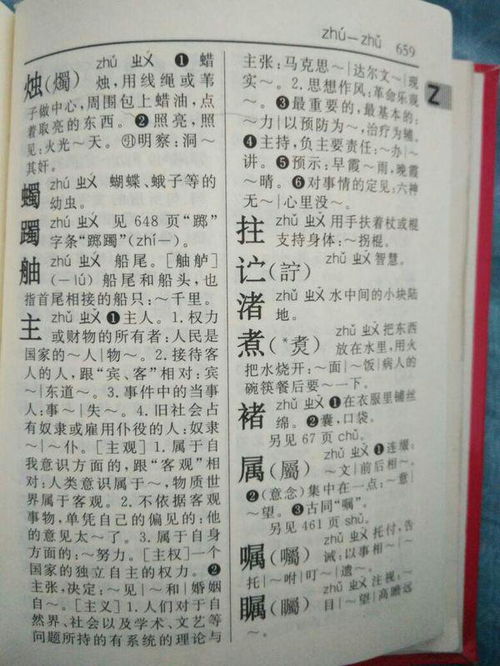 zhú—zhǔ 659
烛(燭) zhú ㄓㄨˊ ❶蜡
烛，用线绳或苇
子做中心，周围包上蜡油，点
着取亮的东西。❷照亮，照
见：火光～天。㊞明察：洞～
其奸。
蠋 zhú ㄓㄨˊ 蝴蝶、蛾子等的
幼虫。
躅 zhú ㄓㄨˊ 见648页“踯”
字条“踯躅”(zhí—)。
舳 zhú ㄓㄨˊ 船尾。[舳舻]
(—lú) 船尾和船头，也
指首尾相接的船只：～千里。
主 zhǔ ㄓㄨˇ ❶主人。1.权力
或财物的所有者：人民是
国家的～人|物～。2.接待客
人的人，跟“宾、客”相对：宾
～|东道～。3.事件中的当事
人：事～|失～。4.旧社会占
有奴隶或雇用仆役的人：奴隶
～|～仆。[主观] 1.属于自
我意识方面的，跟“客观”相
对：人类意识属于～，物质世
界属于客观。2.不依据客观
事物，单凭自己的偏见的：他
的意见太～了。3.属于自身
方面的：～努力。[主权]一个
国家的独立自主的权力。❷
主张，决定：～见|～和|婚姻
自～。[主义] 1.人们对于自
然界、社会以及学术、文艺等
问题所持的有系统的理论与
主张：马克思～|达尔文～|现
实～。2.思想作风：革命乐观
～。❸最重要的，最基本的：
～力|以预防为～，治疗为辅。
❹主持，负主要责任：～办|～
讲。❺预示：早霞～雨，晚霞
～晴。❻对事情的定见：六神
无～|心里没～。
Z
拄 zhǔ ㄓㄨˇ 用手扶着杖或棍
支持身体：～拐棍。
𬣞(詝) zhǔ ㄓㄨˇ 智慧。
渚 zhǔ ㄓㄨˇ 水中间的小块陆
地。
煮(*煑) zhǔ ㄓㄨˇ 把东西
放在水里，用火
把水烧开：～面|～饭|病人的
碗筷餐后要～一下。
褚 zhǔ ㄓㄨˇ ❶在衣服里铺丝
绵。❷囊，口袋。
另见67页chǔ。
属(屬) zhǔ ㄓㄨˇ ❶连缀：
～文|前后相～。
❷(意念)集中在一点：～意|
～望。❸古同“嘱”。
另见461页shǔ。
嘱(囑) zhǔ ㄓㄨˇ 托付，告
诫：以事相～|～
托|～咐|叮～|遗～。
瞩(矚) zhǔ ㄓㄨˇ 注视：～
目|～望|高瞻远
～。